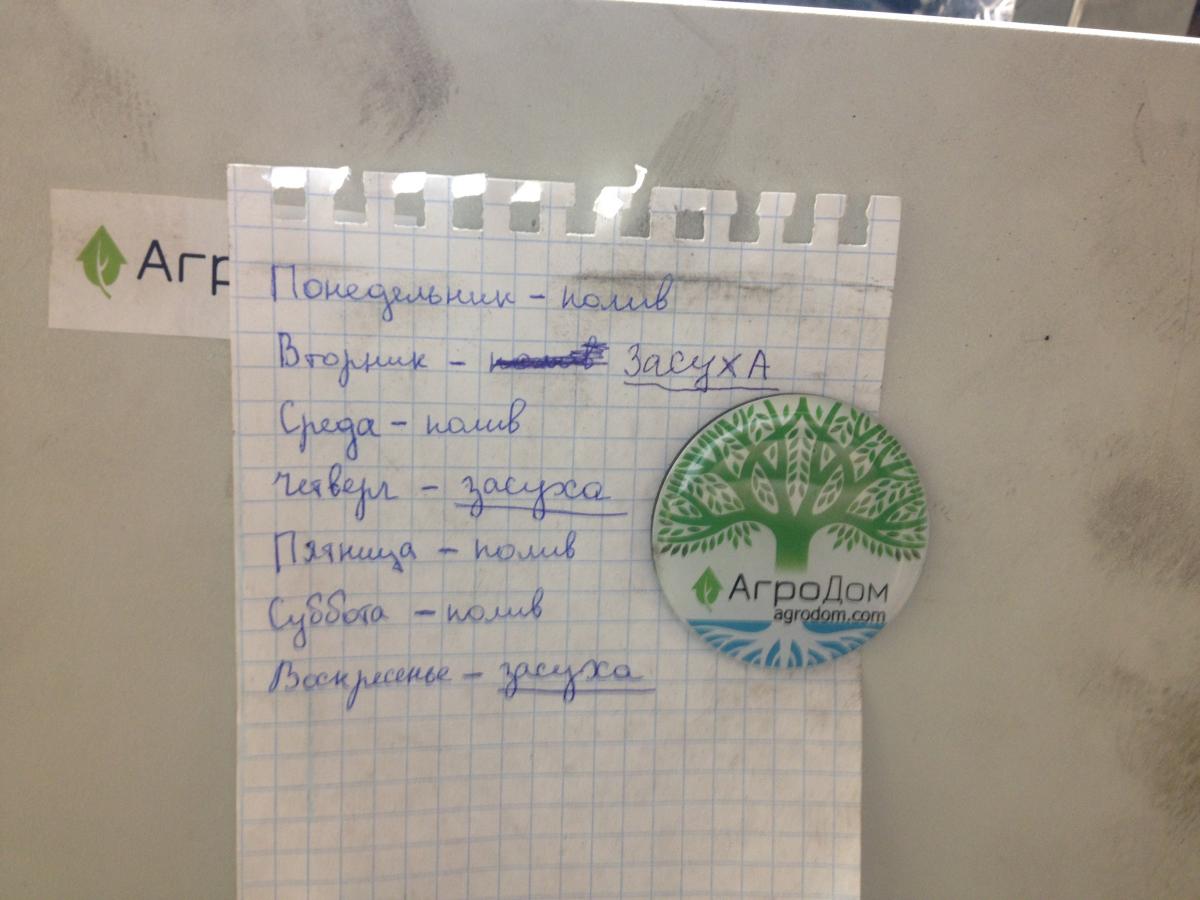 Агр
Понедельник - полив
Вторник - полив ЗАСУХА
Среда - полив
четверг - засуха
Пятница - полив
Суббота - полив
Воскресенье - засуха
АгроДом
agrodom.com